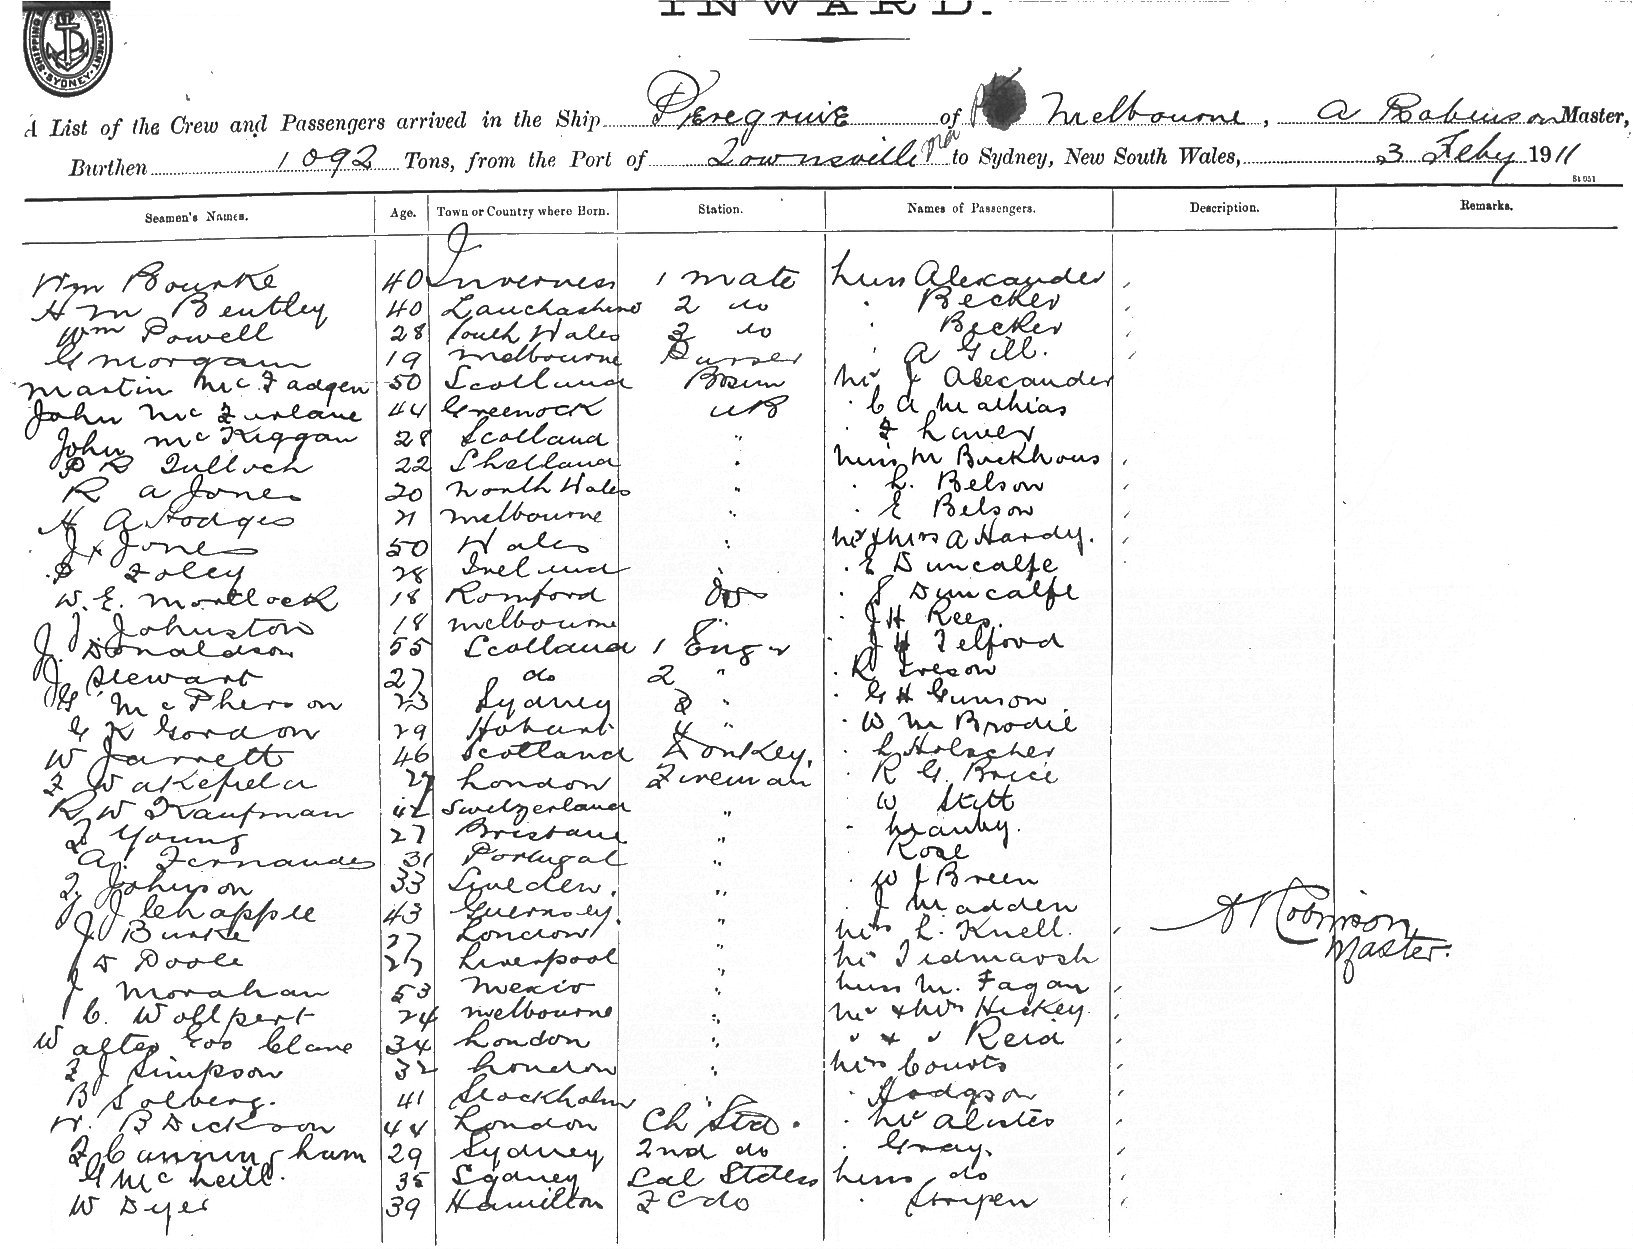 INWARD.
SHIPPING DEPARTMENT SYDNEY
A List of the Crew and Passengers arrived in the Ship Peregrine of Melbourne, A Robinson Master,
Burthen 1092 Tons, from the Port of Townsville to Sydney, New South Wales, 3 Feby 1911
Seamen's Names. Age. Town or Country where Born. Station. Names of Passengers. Description. Remarks.
Wm Bourke 40 Inverness 1 mate Miss Alexander
H M Bentley 40 Lanchashire 2 do " Becker
Wm Powell 28 South Wales 3 do " Becker
G Morgan 19 Melbourne Purser " A Gill.
Martin McFadgen 50 Scotland Bosun Mr J Alexander
John McFurlane 44 Greenock AB " C A Mathias
John McKiggan 28 Scotland " " F Laver
P R Tulloch 22 Shetland " Miss M Backhous
R A Jones 20 North Wales " " L. Belson
H A Hodges 21 Melbourne " " E Belson
J Jones 50 Wales " Mr & Mrs A Hardy.
P Foley 28 Ireland " " E Duncalfe
W. E. Mortlock 18 Romford " S Duncalfe
J Johnston 18 Melbourne " " J H Rees.
J. Donaldson 55 Scotland 1 Engr " J H Telford
J Stewart 27 do 2 " " R Ireson
G McPherson 23 Sydney 3 " " G H Gunson
G K Gordon 29 Hobart 4 " " W M Brodie
W Jarrett 46 Scotland Donkey. " L Holscher
F Wakefield 27 London Fireman " R G Brice
R W Kaufman 42 Switzerland " " W Stitt
F Young 27 Brisbane " " Manby.
A. Fernandes 31 Portugal " " Rose
F Johnson 33 Sweden. " " W J Breen
J Chapple 43 Guernsey. " " J Madden
J Burke 27 London " Mrs L. Knell. A Robinson
D Poole 27 Liverpool " Mr Tidmarsh Master.
J Morahan 53 Mexico " Miss M. Fagan
C. Wollpert 24 Melbourne " Mr & Mrs Hickey
Walter Geo Clane 34 London " " & " Reid
F J Simpson 32 London " Mrs Courts
B Solberg. 41 Stockholm " " Hodgson
W. B Dickson 44 London Ch Std. " McAlister
F Cunningham 29 Sydney 2nd do " Gray.
G McNeill. 35 Sydney Sal Stdess Miss do
W Dyer 39 Hamilton F C do "